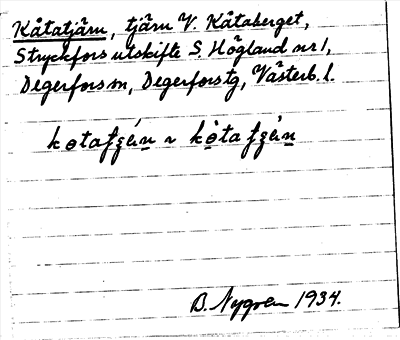 Kåtatjärn, tjärn V. Kåtaberget,
Stryckfors utskifte S. Högland nr 1,
Degerfors sn, Degerfors tg, Västerb. l.
B. Nygren 1934.